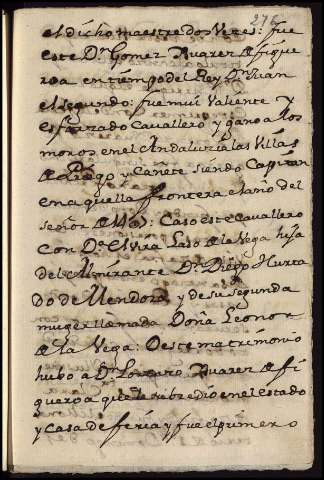 276
el dicho maestre dos Veces: fue
este Dn Gomez Xuarez de figue
roa en tiempo del Rey Dn Juan
el segundo: fue mui Valiente Y
esforzado Cavallero y gano a los
moros en el Andaluzia las Villas
de Priego y Cañete siendo Capitan
en aquella frontera el año del
señor de : Caso este Cavallero
Con Da Elvira Laso de la Vega hija
del Almirante Dn Diego Hurta
do de Mendoza, y de su segunda
muger llamada Doña Leonor
de la Vega: De este matrimonio
hubo a Dn Lorenzo Xuarez de fi
gueroa que le subzedio en el estado
y Casa de feria y fue el primero